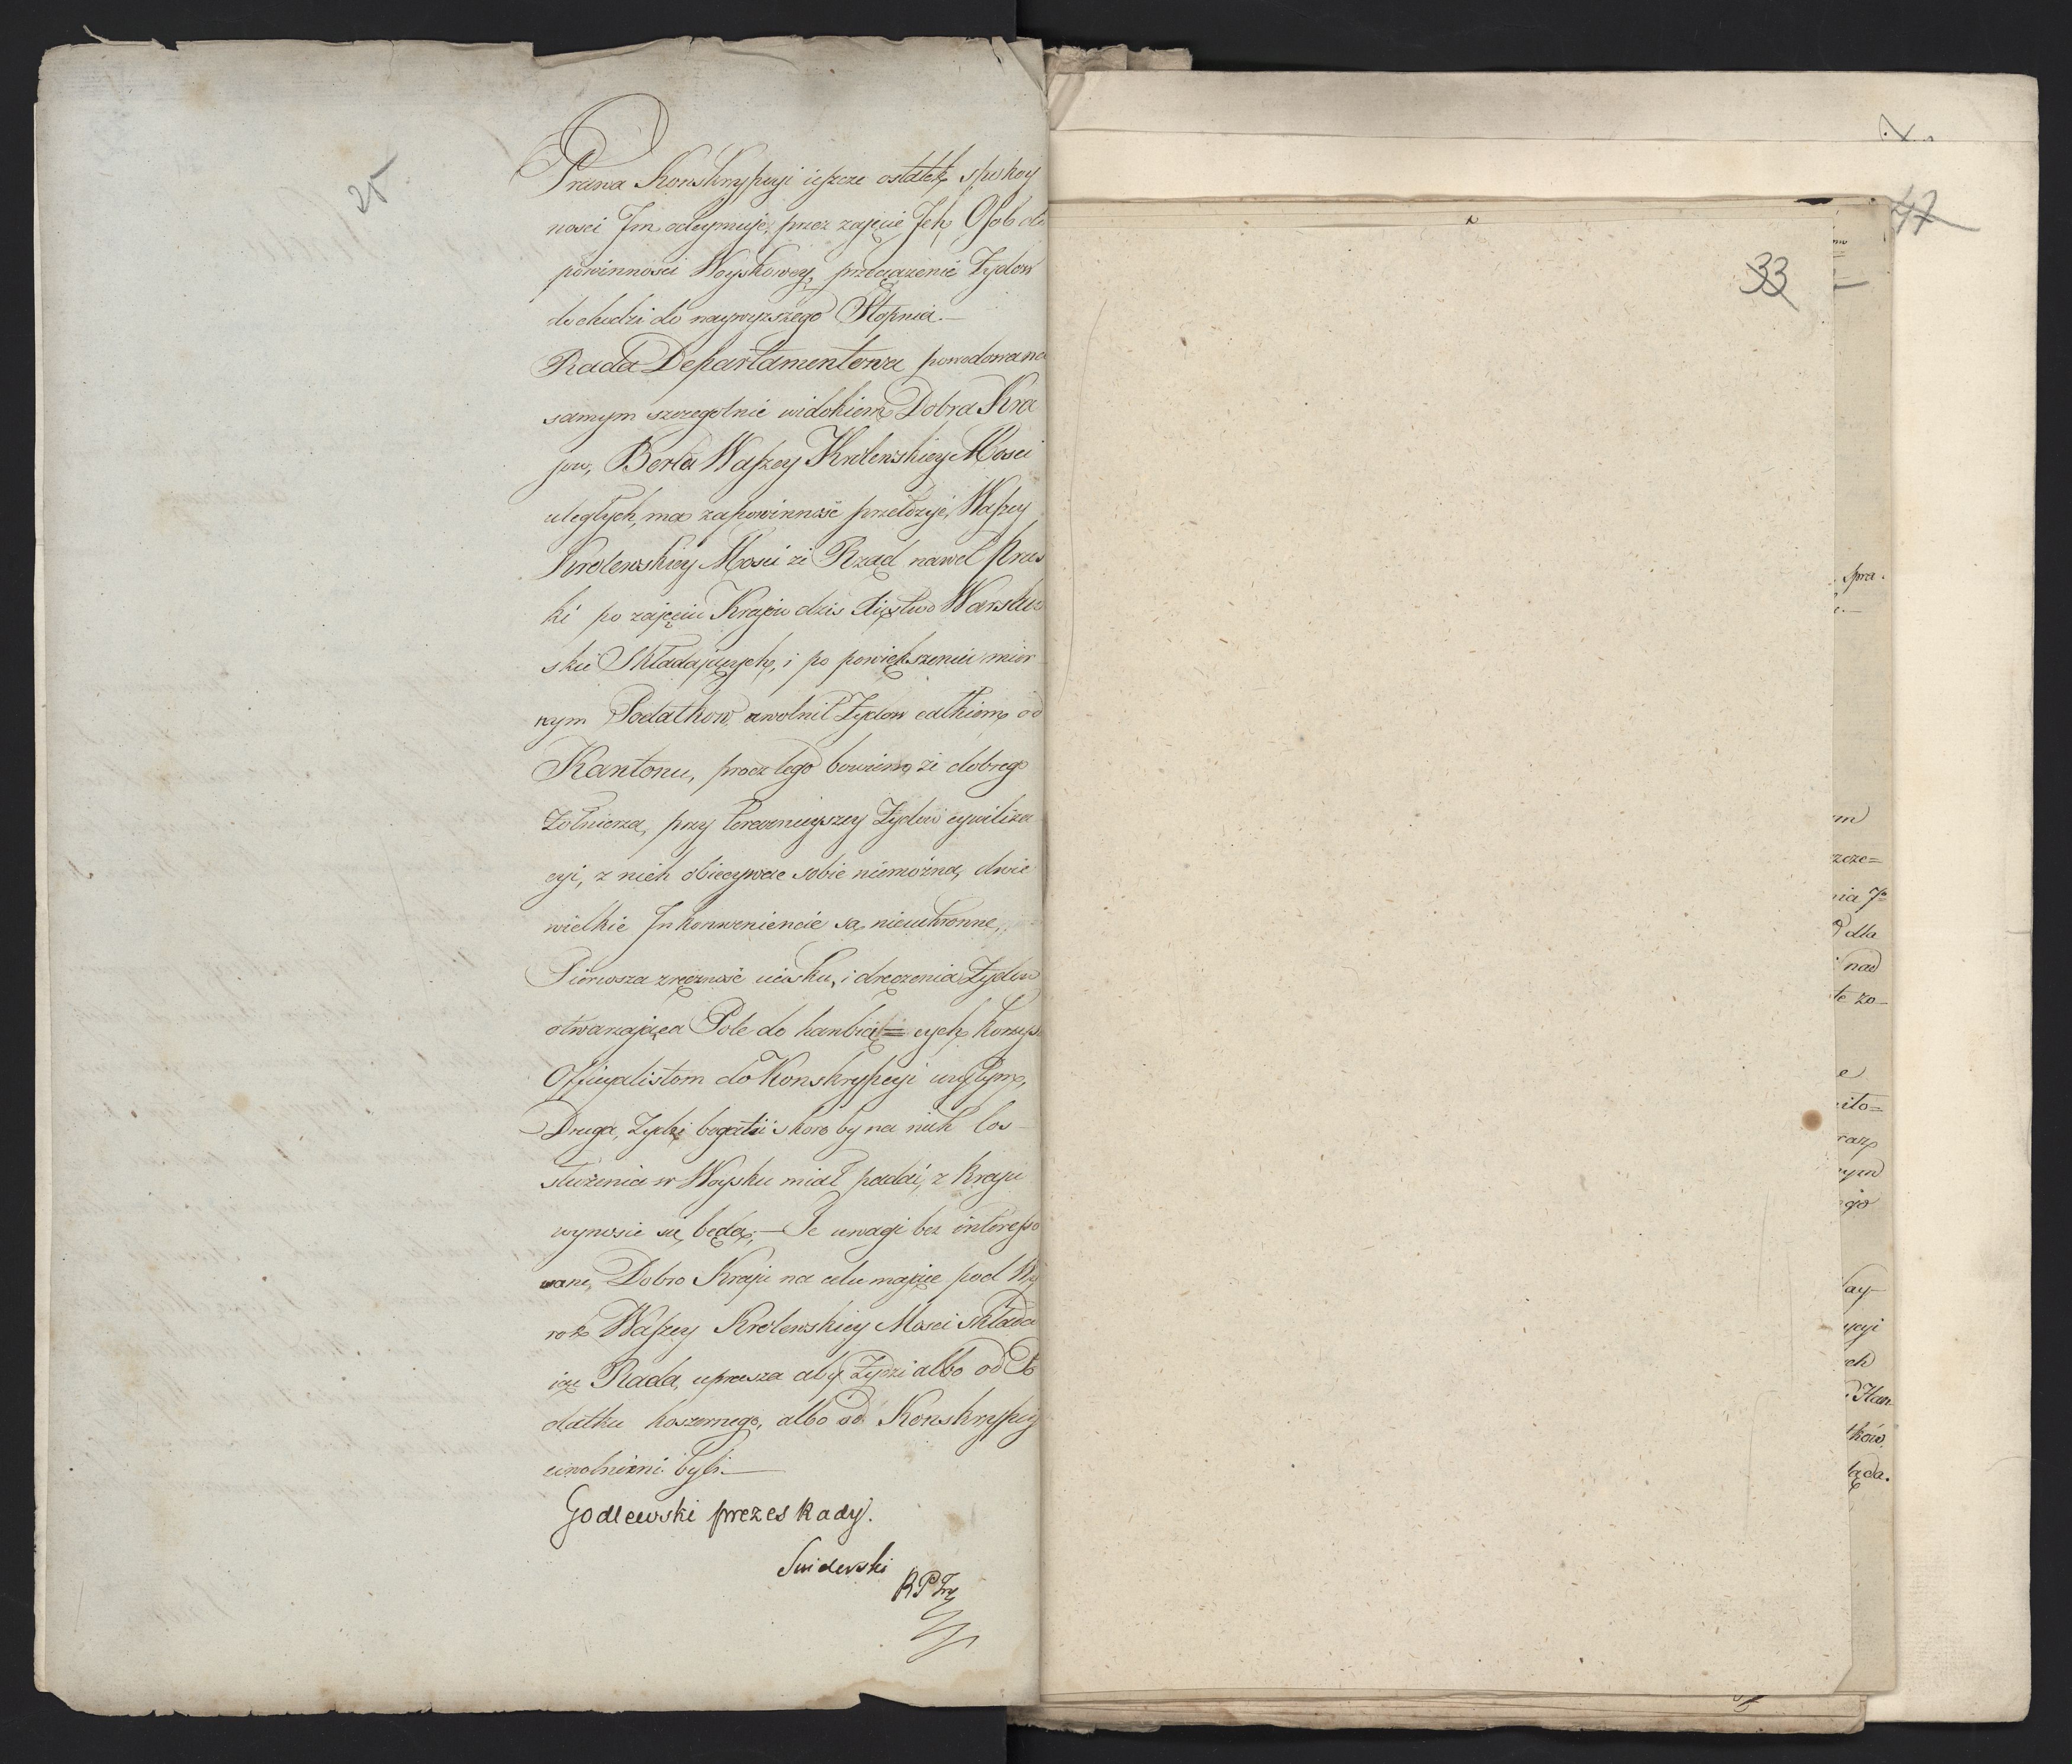 25
Prawa Konskrypcyi ieszcze ostatek spokoy
nosci Jm odeymuje, przez zajęcie Jch Osob do
powinnosci Woyskowey, przeciążenie Żydow
dochodzi do naywyzszego Stopnia.—
Rada Departamentowa powodowana
samym szczegolnie widokiem Dobra Kra
jow, Berła Waszey Krolewskiey Mosci
uległych, ma za powinność przełożyć, Waszey
Krolewskiey Mosci że Rząd nawet Prus
ki po zajęciu Krajow dzis Xięstwo Warszaw
skie Składających, i po powiększeniu mier
nym Podatkow, uwolnił Żydow całkiem od
Kantonu, procz tego bowiem, że dobrego
Żołnierza, przy terazniejszey Żydow cywiliza
cyi, z nich obiecywać sobie niemożna, dwie
wielkie Jnkonweniencie są nieuchronne,
Pierwsza zręczność ucisku, i dręczenia Żydow
otwarzająca Pole do hanbią= cych korzys
Officyalistom do Konskrypcyi użytym,
Druga, Żydzi bogatsi skoro by na nich los
służenia w Woysku miał padać, z Kraju
wynosić się będą;— Te uwagi bez interesso
wane, Dobro Kraju na celu mające pod Wy
rok Waszey Krolewskiey Mosci składa
iąc Rada, uprasza aby Żydzi albo od Po
datku koszernego, albo od Konskrypcyi
uwolnieni byli.—
Godlewski prezes Rady.
Swiderski
RPZy
47
33
Spra.
zcze=
nia J
dla
nad
te zo—
e
ito=
raz
ym
go
lay—
ycyi
ch
Han
tków.